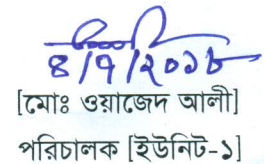 ৪/৭/২০১৮
[মোঃ ওয়াজেদ আলী]
পরিচালক [ইউনিট-১]